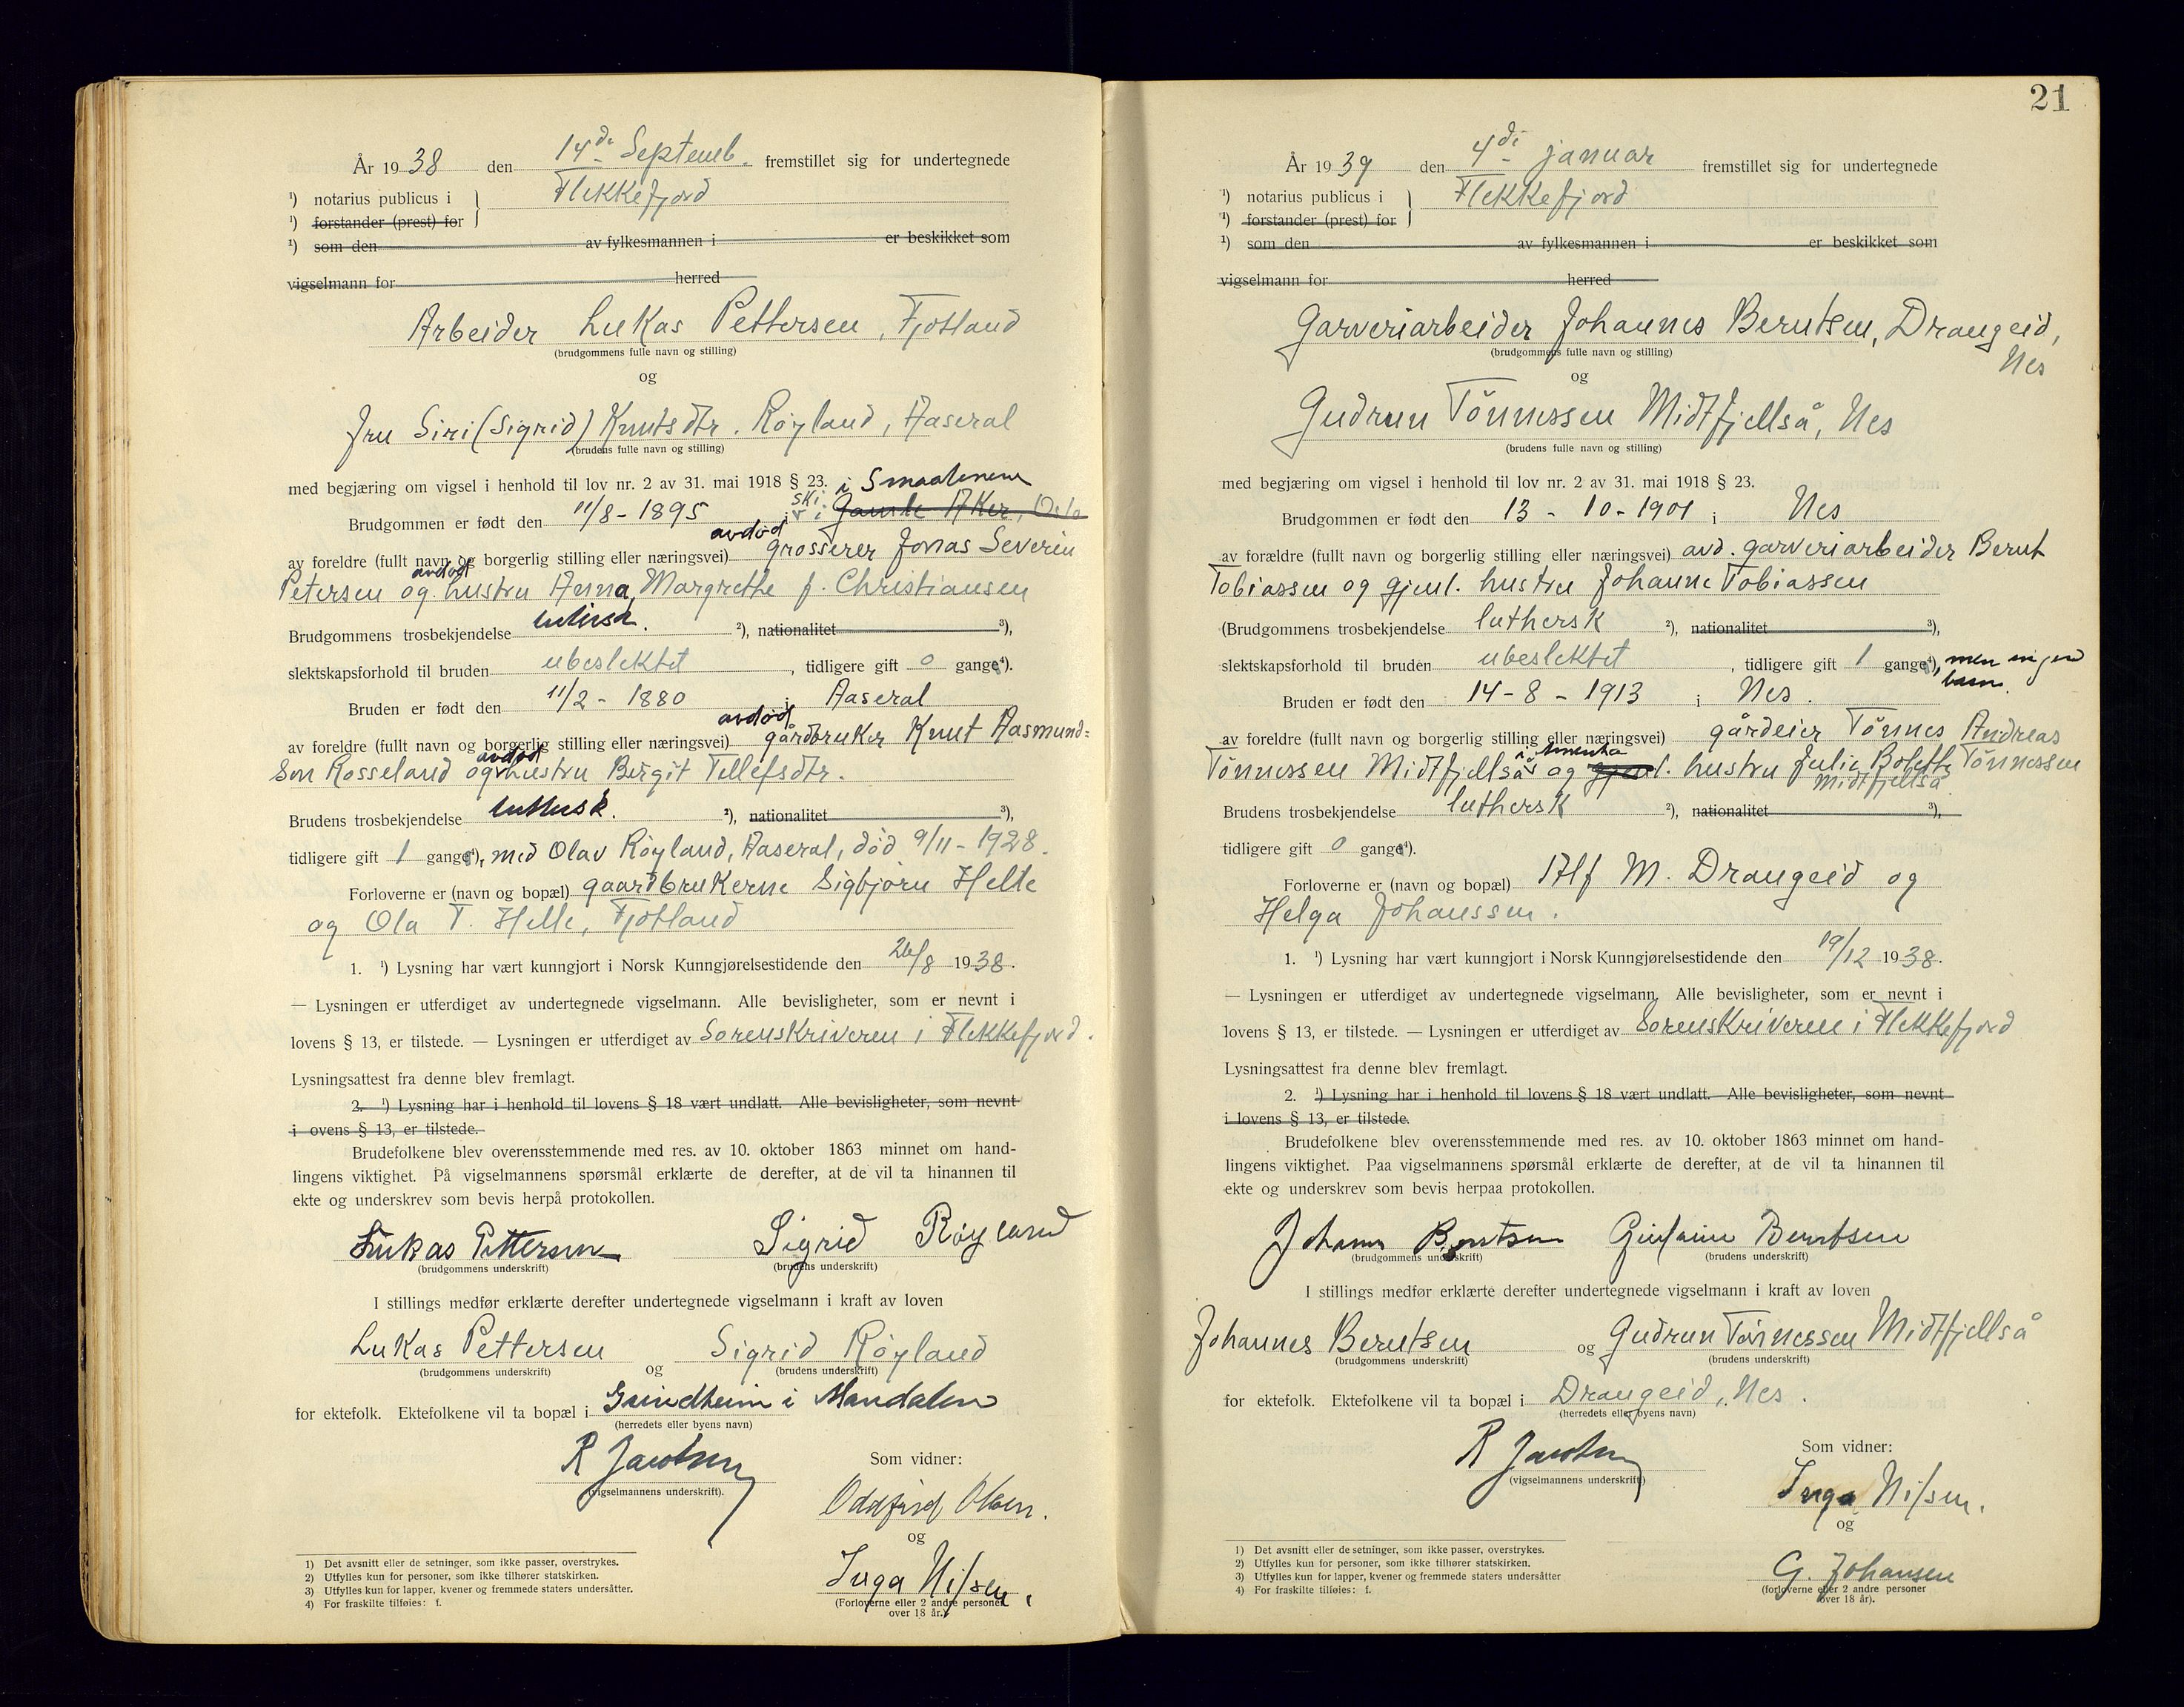 År 1938 den 14de Septemb. fremstillet sig for undertegnede
¹) notarius publicus i Flekkefjord
¹) forstander (prest) for
¹) som den av fylkesmannen i er beskikket som
vigselmann for herred
Arbeider Lukas Pettersen, Fjotland
(brudgommens fulle navn og stilling)
og
Fru Siri (Sigrid) Knutsdtr. Røyland, Aaseral
(brudens fulle navn og stilling)
med begjæring om vigsel i henhold til lov nr. 2 av 31. mai 1918 § 23. i Smaalenene
Brudgommen er født den 11/8 - 1895 i Ski Gamle Aker, Oslo
av foreldre (fullt navn og borgerlig stilling eller næringsvei) avdød grosserer Jonas Severin
Petersen og avdød hustru Anna Margrethe f. Christiansen
Brudgommens trosbekjendelse luthersk. ²), nationalitet ³),
slektskapsforhold til bruden ubeslektet, tidligere gift 0 gange⁴).
Bruden er født den 11/2 - 1880 i Aaseral
av foreldre (fullt navn og borgerlig stilling eller næringsvei) avdød gårdbruker Knut Aasmund=
son Rosseland og avdød hustru Birgit Tellefsdtr.
Brudens trosbekjendelse luthersk. ²), nationalitet ³),
tidligere gift 1 gange⁴), med Olav Røyland, Aaseral, død 9/11 - 1928.
Forloverne er (navn og bopæl) gaardbrukerne Sigbjørn Helle
og Ola T. Helle, Fjotland
1. ¹) Lysning har vært kunngjort i Norsk Kunngjørelsestidende den 26/8 1938.
— Lysningen er utferdiget av undertegnede vigselmann. Alle bevisligheter, som er nevnt i
lovens § 13, er tilstede. — Lysningen er utferdiget av Sorenskriveren i Flekkefjord.
Lysningsattest fra denne blev fremlagt.
2. ¹) Lysning har i henhold til lovens § 18 vært undlatt. Alle bevisligheter, som nevnt
i ovens § 13, er tilstede.
Brudefolkene blev overensstemmende med res. av 10. oktober 1863 minnet om hand-
lingens viktighet. På vigselmannens spørsmål erklærte de derefter, at de vil ta hinannen til
ekte og underskrev som bevis herpå protokollen.
Lukas Pettersen Sigrid Røyland
(brudgommens underskrift) (brudens underskrift)
I stillings medfør erklærte derefter undertegnede vigselmann i kraft av loven
Lukas Pettersen og Sigrid Røyland
(brudgommens underskrift) (brudens underskrift)
for ektefolk. Ektefolkene vil ta bopæl i Grindheim i Mandalen
(herredets eller byens navn)
R Jacobsen Som vidner:
(vigselmannens underskrift).
Olsen.
og
Inga Nilsen.
(Forloverne eller 2 andre personer
over 18 år.)
1) Det avsnitt eller de setninger, som ikke passer, overstrykes.
2) Utfylles kun for personer, som ikke tilhører statskirken.
3) Utfylles kun for lapper, kvener og fremmede staters undersåtter.
4) For fraskilte tilføies: f.
21
År 1939 den 4de januar fremstillet sig for undertegnede
¹) notarius publicus i Flekkefjord
¹) forstander (prest) for
¹) som den av fylkesmannen i er beskikket som
vigselmann for herred
Garveriarbeider Johannes Berntsen, Drangeid,
Nes
(brudgommens fulle navn og stilling)
og
Gudrun Tönnessen Midtfjellså, Nes
(brudens fulle navn og stilling)
med begjæring om vigsel i henhold til lov nr. 2 av 31. mai 1918 § 23.
Brudgommen er født den 13 - 10 - 1901 i Nes
av forældre (fullt navn og borgerlig stilling eller næringsvei) avd. garveriarbeider Bernt
Tobiassen og gjenl. hustru Johanne Tobiassen
(Brudgommens trosbekjendelse luthersk ²), nationalitet ³),
slektskapsforhold til bruden ubeslektet, tidligere gift 1 gange⁴), men ingen
barn.
Bruden er født den 14 - 8 - 1913 i Nes.
av foreldre (fullt navn og borgerlig stilling eller næringsvei) gårdeier Tönnes Andreas
Tönnessen Midtfjellså i Amerika og gjenl. hustru Julie Bolette Tönnessen
Midtfjellså.
Brudens trosbekjendelse luthersk ²), nationalitet ³),
tidligere gift 0 gange⁴).
Forloverne er (navn og bopæl) Alf M. Drangeid og
Helga Johanssen.
1. ¹) Lysning har vært kunngjort i Norsk Kunngjørelsestidende den 19/12 1938.
— Lysningen er utferdiget av undertegnede vigselmann. Alle bevisligheter, som er nevnt i
lovens § 13, er tilstede. — Lysningen er utferdiget av Sorenskriveren i Flekkefjord
Lysningsattest fra denne blev fremlagt.
2. ¹) Lysning har i henhold til lovens § 18 vært undlatt. Alle bevisligheter, som nevnt
i lovens § 13, er tilstede.
Brudefolkene blev overensstemmende med res. av 10. oktober 1863 minnet om hand-
lingens viktighet. Paa vigselmannens spørsmål erklærte de derefter, at de vil ta hinannen til
ekte og underskrev som bevis herpaa protokollen.
Johannes Berntsen Berntsen
(brudgommens underskrift) (brudens underskrift)
I stillings medfør erklærte derefter undertegnede vigselmann i kraft av loven
Johannes Berntsen og Gudrun Tönnessen Midtfjellså
(brudgommens underskrift) (brudens underskrift)
for ektefolk. Ektefolkene vil ta bopæl i Drangeid, Nes.
(herredets eller byens navn)
R Jacobsen Som vidner:
(vigselmannens underskrift)
Inga Nilsen.
og
G. Johansen
(forloverne eller 2 andre personer
over 18 år).
1) Det avsnitt eller de setninger, som ikke passer, overstrykes.
2) Utfylles kun for personer, som ikke tilhører statskirken.
3) Utfylles kun for lapper, kvener og fremmede staters undersåtter
4) For fraskilte tilføies: f.